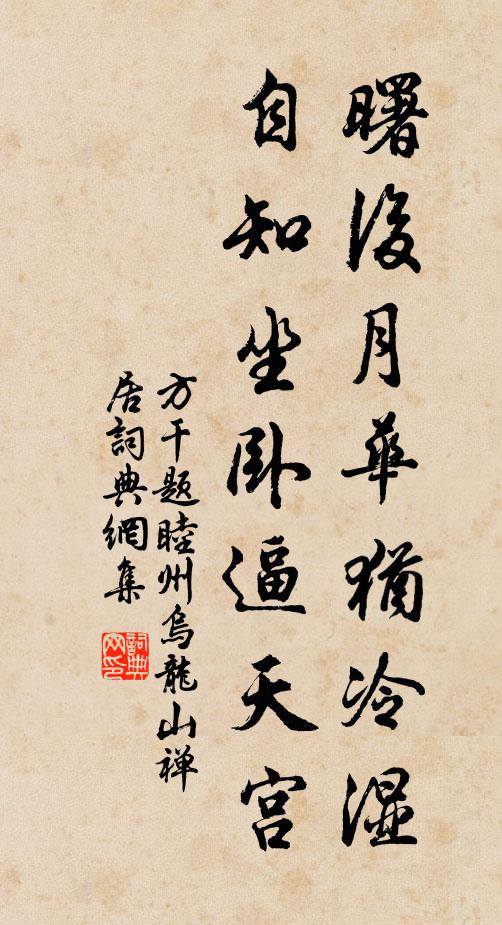 曙後月華猶冷湿
自知坐卧逼天宫
方干题睦州烏龍山禅
居詞典網集
詞典
网印